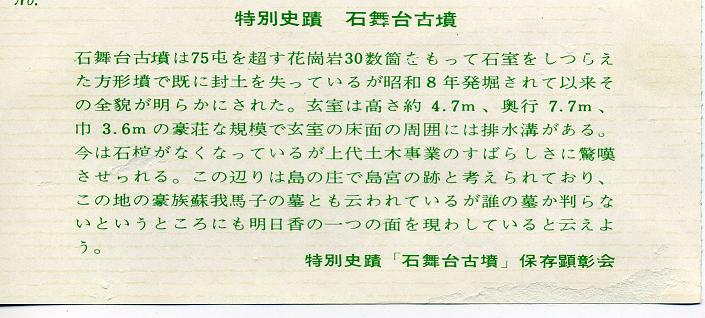 No.
特別史蹟　石舞台古墳
石舞台古墳は75屯を超す花崗岩30数箇をもって石室をしつらえ
た方形墳で既に封土を失っているが昭和８年発掘されて以来そ
の全貌が明らかにされた。玄室は高さ約 4.7m、奥行 7.7m、
巾 3.6m の豪荘な規模で玄室の床面の周囲には排水溝がある。
今は石棺がなくなっているが上代土木事業のすばらしさに驚嘆
させられる。この辺りは島の庄で島宮の跡と考えられており、
この地の豪族蘇我馬子の墓とも云われているが誰の墓か判らな
いというところにも明日香の一つの面を現わしていると云えよ
う。
特別史蹟「石舞台古墳」保存顕彰会